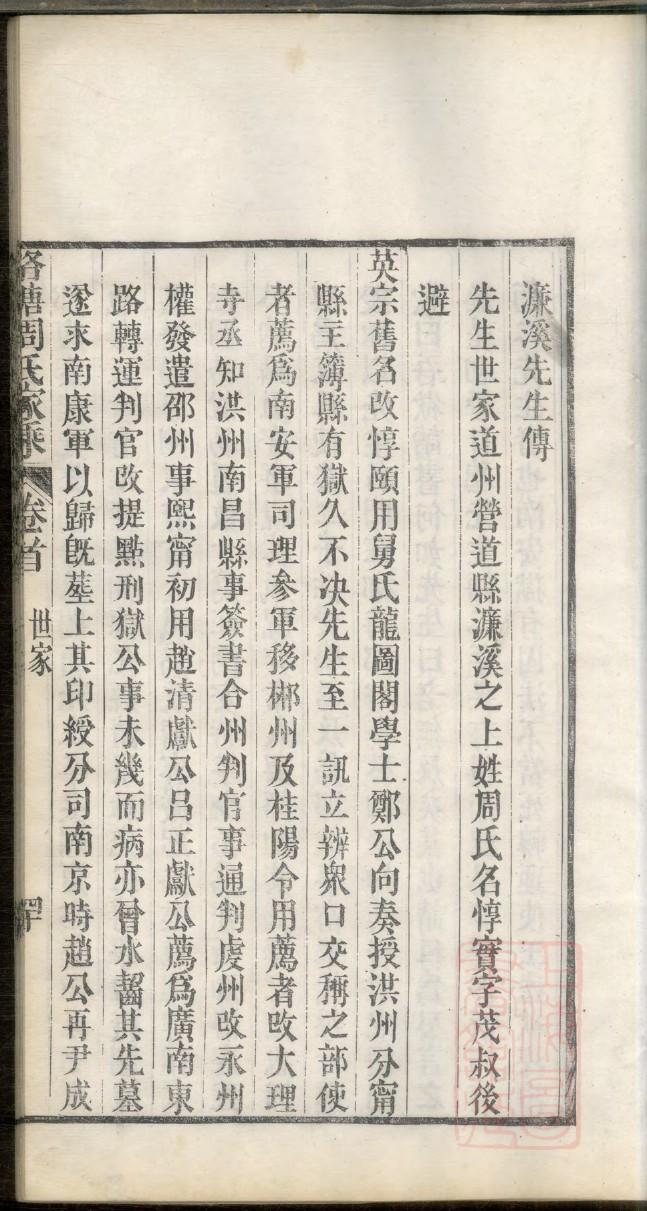 濂溪先生傳
先生世家道州營道縣濂溪之上姓周氏名惇實字茂叔後
避
英宗舊名改惇頤用舅氏龍圖閣學士鄭公向奏授洪州分甯
縣主簿縣有獄久不决先生至一訊立辨衆口交稱之部使
者薦爲南安軍司理參軍移郴州及桂陽令用薦者改大理
寺丞知洪州南昌縣事簽書合州判官事通判虔州改永州
權發遣邵州事熙甯初用趙清獻公呂正獻公薦爲廣南東
路轉運判官改提㸃刑獄公事未幾而病亦會水齧其先墓
遂求南康軍以歸旣塟上其印綬分司南京時趙公再尹成
周氏家乘 卷首 世家